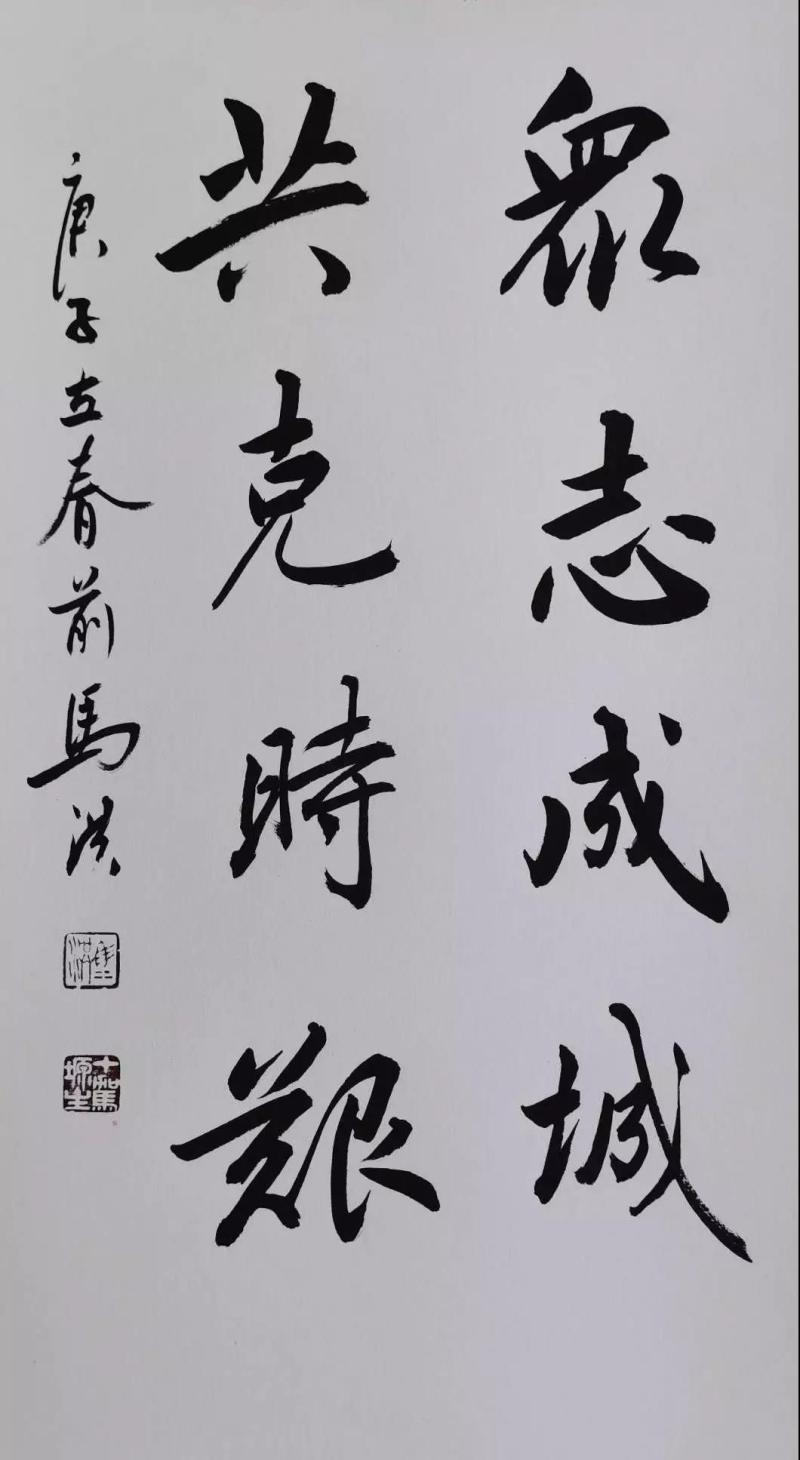 眾志成城
共克時艱
庚子立春前馬洪